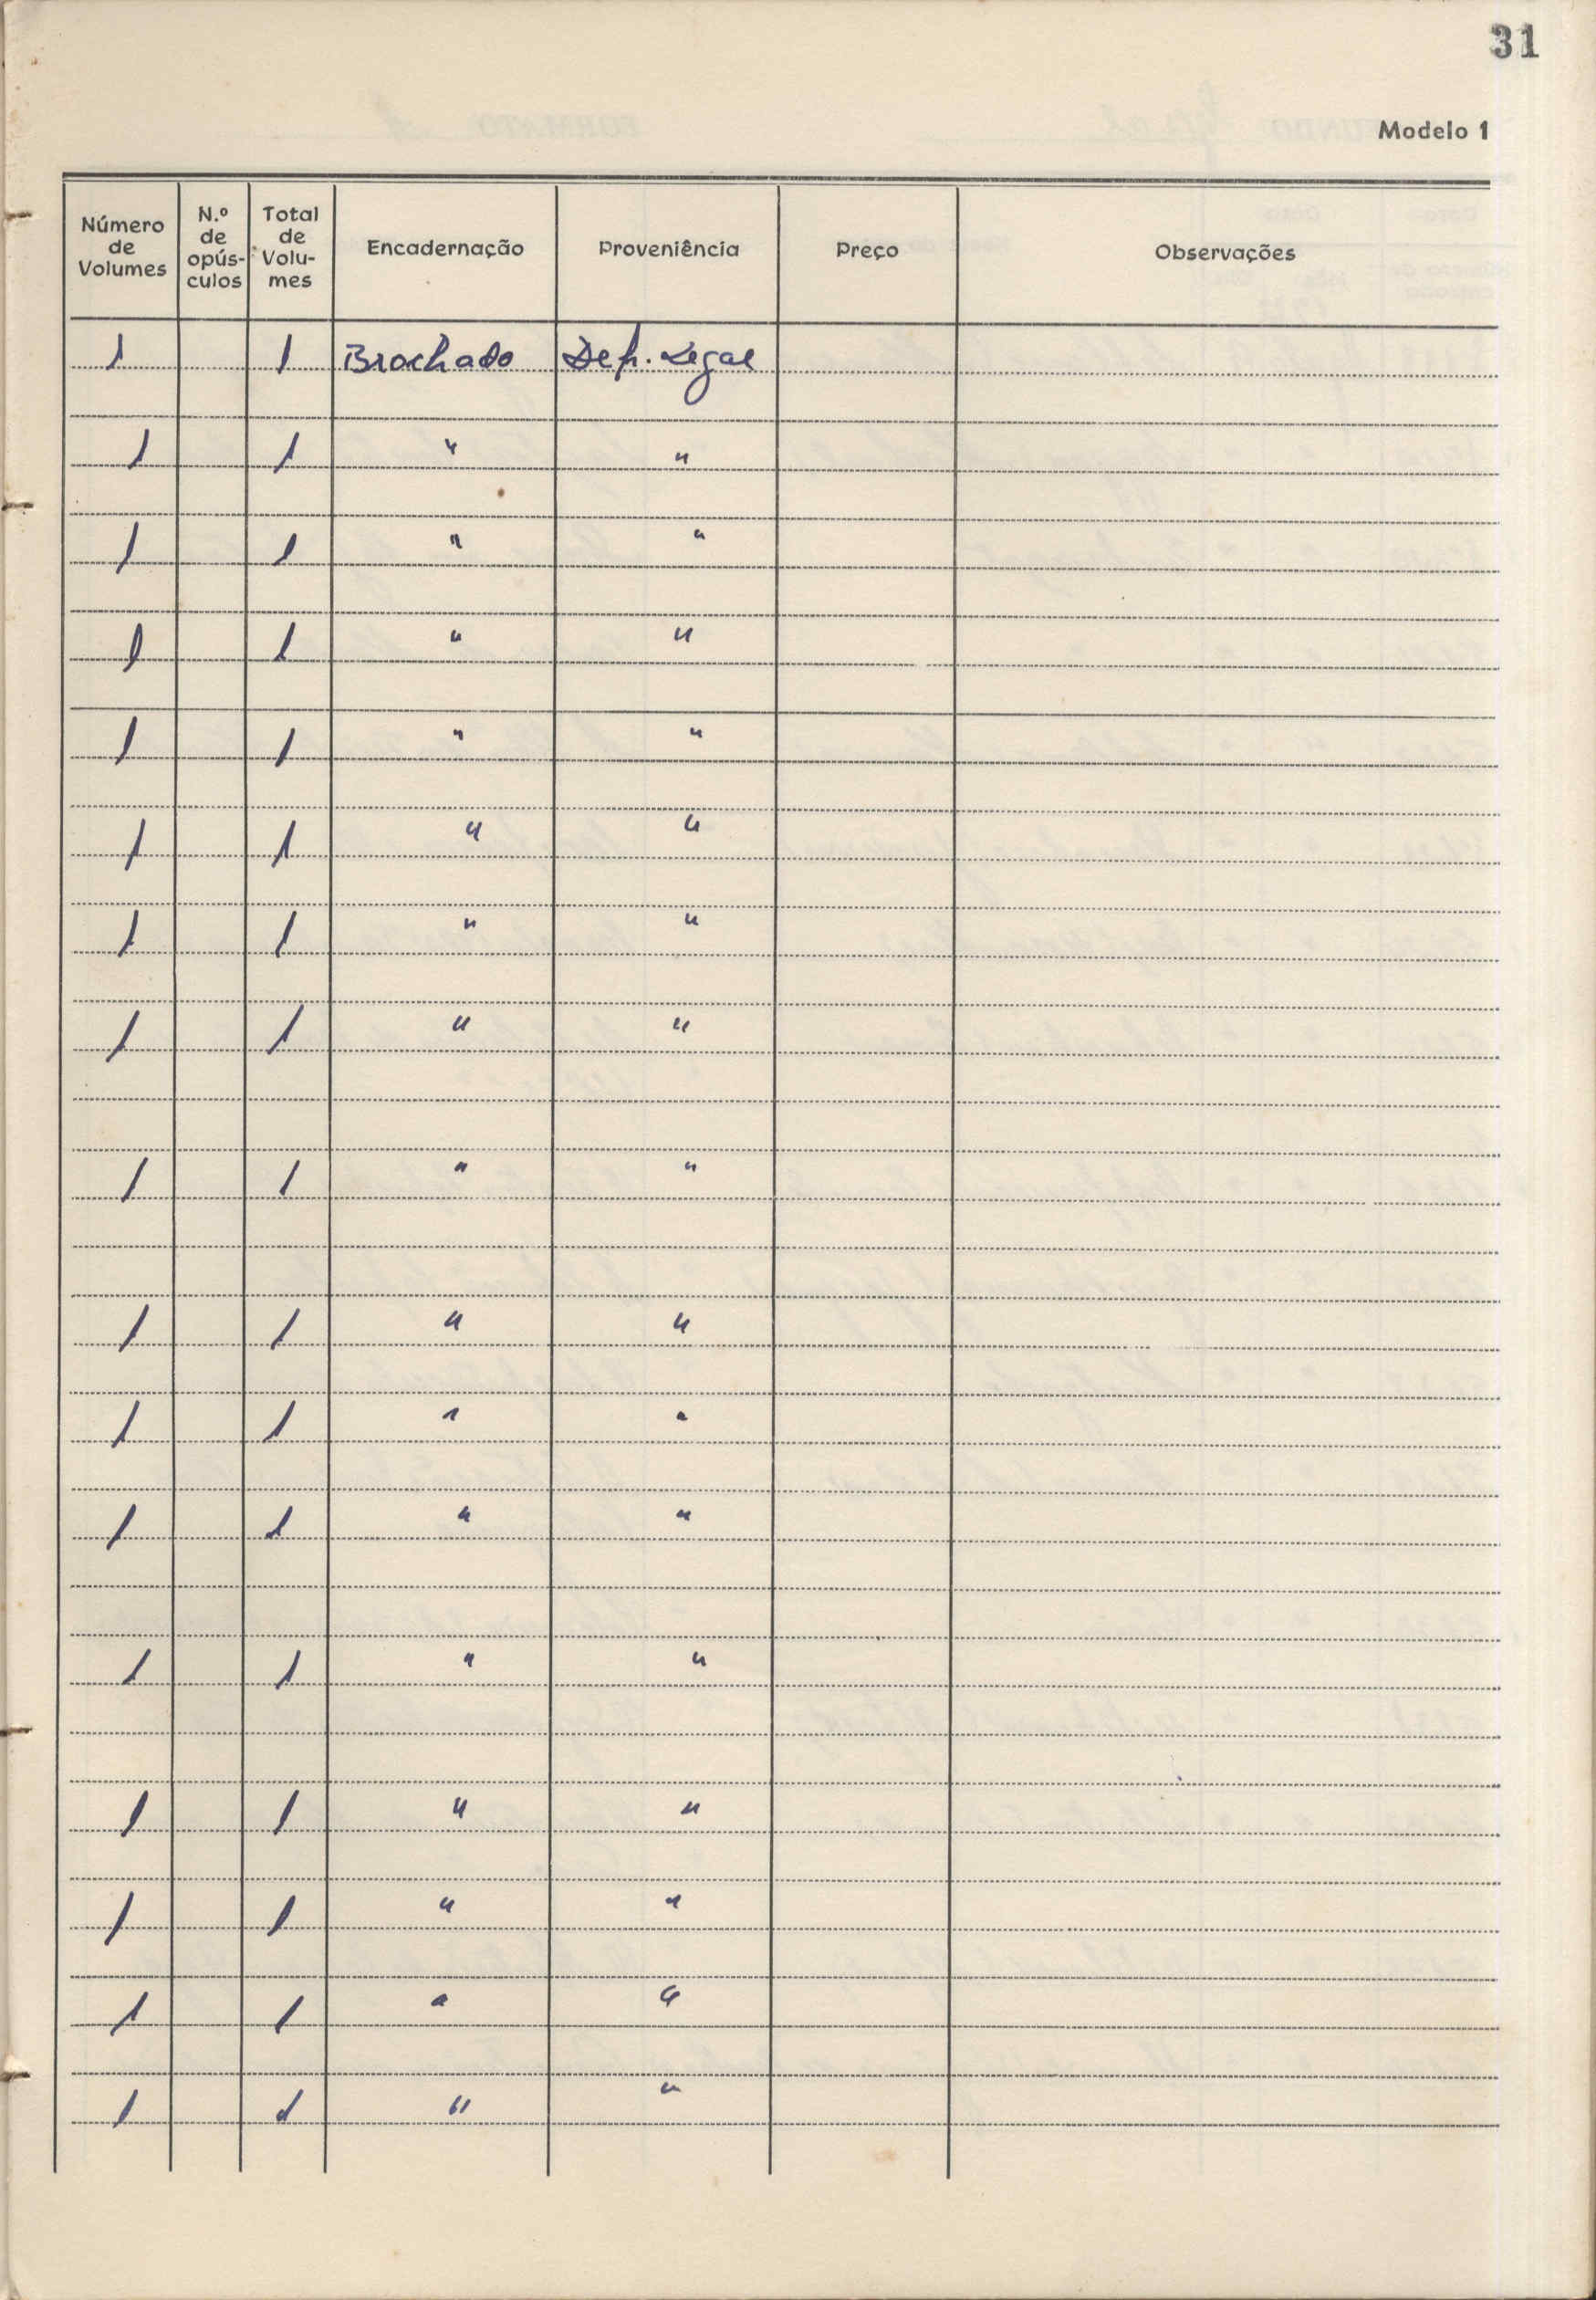 31
Modelo 1
Número de Volumes N.º de opús-culos Total de Volu-mes Encadernação Proveniência Preço Observações
1 1 Brochado Dep. Legal
1 1 " "
1 1 " "
1 1 " "
1 1 " "
1 1 " "
1 1 " "
1 1 " "
1 1 " "
1 1 " "
1 1 " "
1 1 " "
1 1 " "
1 1 " "
1 1 " "
1 1 " "
1 1 " "